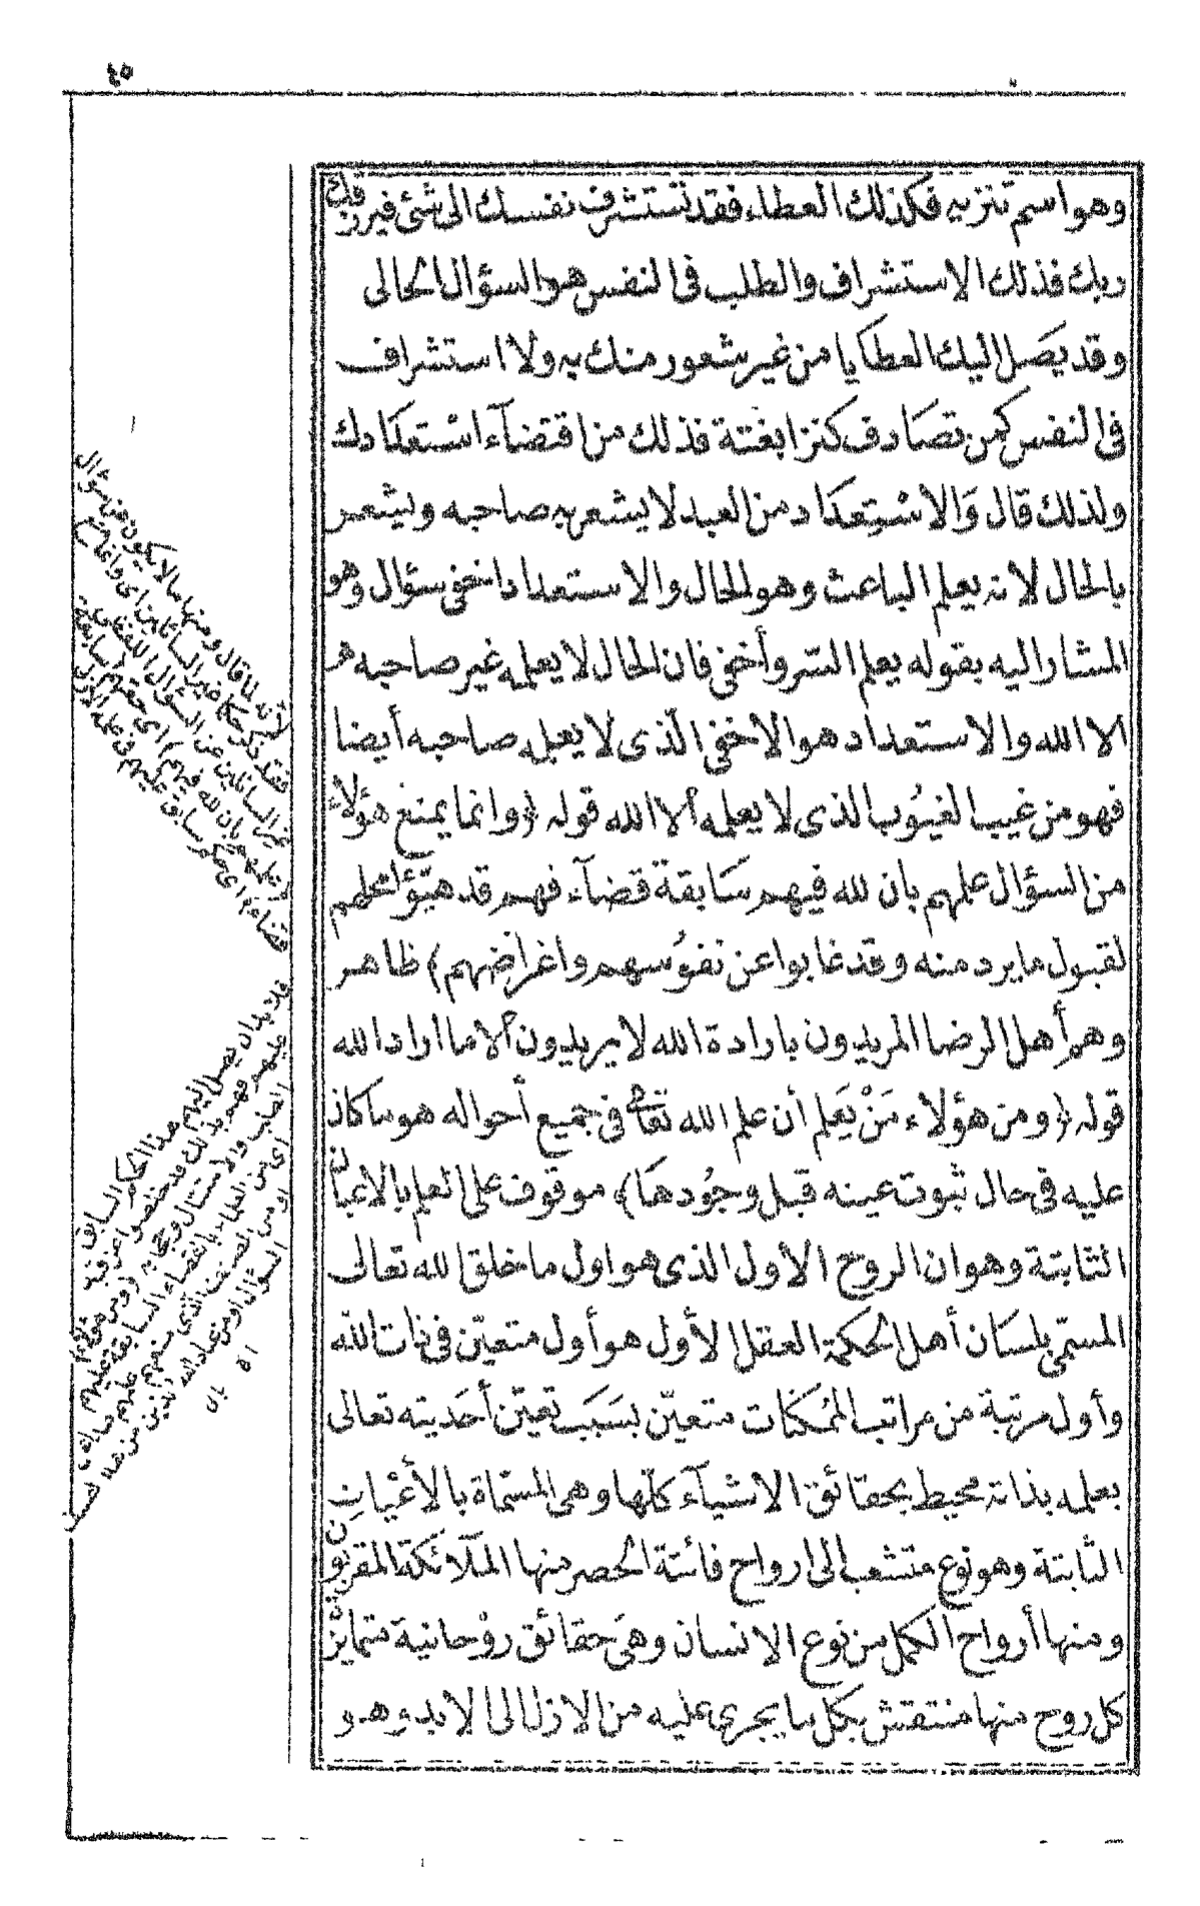 ٤٥
وهو اسم تنزيه فكذلك العطاء فقد تستشرف نفسك الى شئ فيرزقك
ربك فذلك الاستشراف والطلب فى النفس هو السؤال الحالى
وقد يَصَل اليك العطايا من غير شعور منك به ولا استشراف
فى النفس كمن تصَادف كنزا بغتة فذلك من اقتضآء اسْتعدَادك
ولذلك قال وَالاسْتِعدَاد من العبد لا يشعر به صاحبه ويشعر
بالحال لانه يعلم الباعث وهو الحال والاستعداد اخفى سؤال وهو
المشار اليه بقوله يعلم السّر وأخفى فان الحال لا يعلمه غير صاحبه
الا الله والاستعداد هو الاخفى الّذى لا يعلمه صاحبه أيضا
فهو من غيب الغيُوب الذى لا يعلمه الا الله قوله ﴿وانما يمنع هؤلاء
من السؤال علمهم بان لله فيهم سَابقة قضآء فهم قد هيّؤا محلهم
لقبول ما يرد منه وقد غابوا عن نفوُسهم واغراضهم﴾ ظاهر
وهم أهل الرضا المريدون بارادة الله لا يريدون الا ما اراد الله
قوله ﴿ومن هؤلاء مَنْ يَعَلم أن علم الله تعالى فى جميع أحواله هو ما كان
عليه فى حال ثبوت عينه قبل وجوُدهَا﴾ موقوف على العلم بالاعيان
الثابتة وهو ان الروح الاول الذى هو اول ما خلق الله تعالى
المسمّى بلسَان أهل الحكمة العقل الأول هو أول متعيّن فى ذات الله
وأول مرتبة من مراتب الممُكنات متعيّن بسَبَب تعيّن أحَديته تعالى
بعلمه بذاته محيط بحقائق الاشيآء كلّها وهى المسّماة بالأعْيان
الثابتة وهو نوع متشعب الى ارواح فائتة الحصر منها الملآئكة المقربون
ومنها أرواح الكمل من نوع الانسان وهىَ حقائق روْحانية متمايزْة
كل روح منها منتقش بكل ما يجرى عليه من الازل الى الابد وهو
لانه لما قال ومنها ما لا يكون عن سؤال
فقد ذكر حكم غير السائلين اى وانما منع
غير السائلين عن السؤال اللفظى
علمهم بان لله فيهم) اى فى حقهم (سابقة
قضاء) اى حكم سابق عليهم فى علمه الازلى
فلا بد ان يصل اليهم هذا الحكم السابق
عليهم فهم بذلك قد خلصوا عن قيد